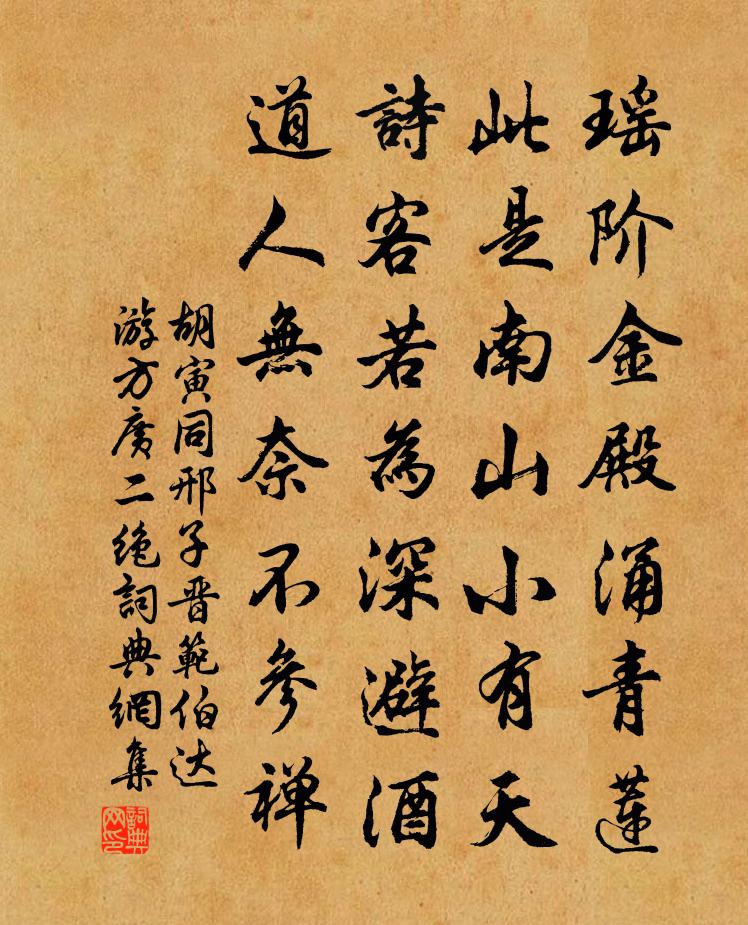 瑶阶金殿涌青蓮
此是南山小有天
詩客若為深避酒
道人無奈不參禅
胡寅同邢子晋範伯达
游方廣二绝詞典網集
詞典
网印